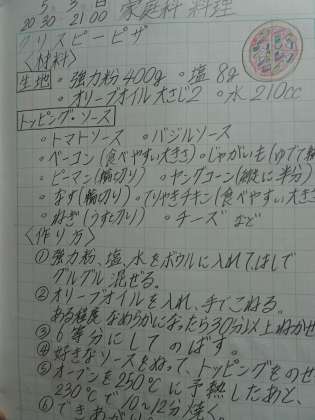 5 3 日
20 30 21 00 家庭科 料理
クリスピーピザ
〈材料〉
生地 ・強力粉 400g ・塩 8g
・オリーブオイル 大さじ2 ・水 210cc
トッピング・ソース
・トマトソース ・バジルソース
・ベーコン(食べやすい大きさ) ・じゃがいも(ゆでて輪
・ピーマン(輪切り) ・ヤングコーン(縦に半分)
・なす(輪切り) ・てりやきチキン(食べやすい大き
・ねぎ(うす切り) ・チーズ など
〈作り方〉
① 強力粉、塩、水をボウルに入れて、はしで
グルグル混ぜる。
② オリーブオイルを入れ、手でこねる。
ある程度なめらかになったら30分以上ねかせ
③ 6等分にしてのばす。
④ 好きなソースをぬって、トッピングをのせ
⑤ オーブンを250℃に予熱したあと、
230℃で10〜12分焼く。
⑥ できあがり